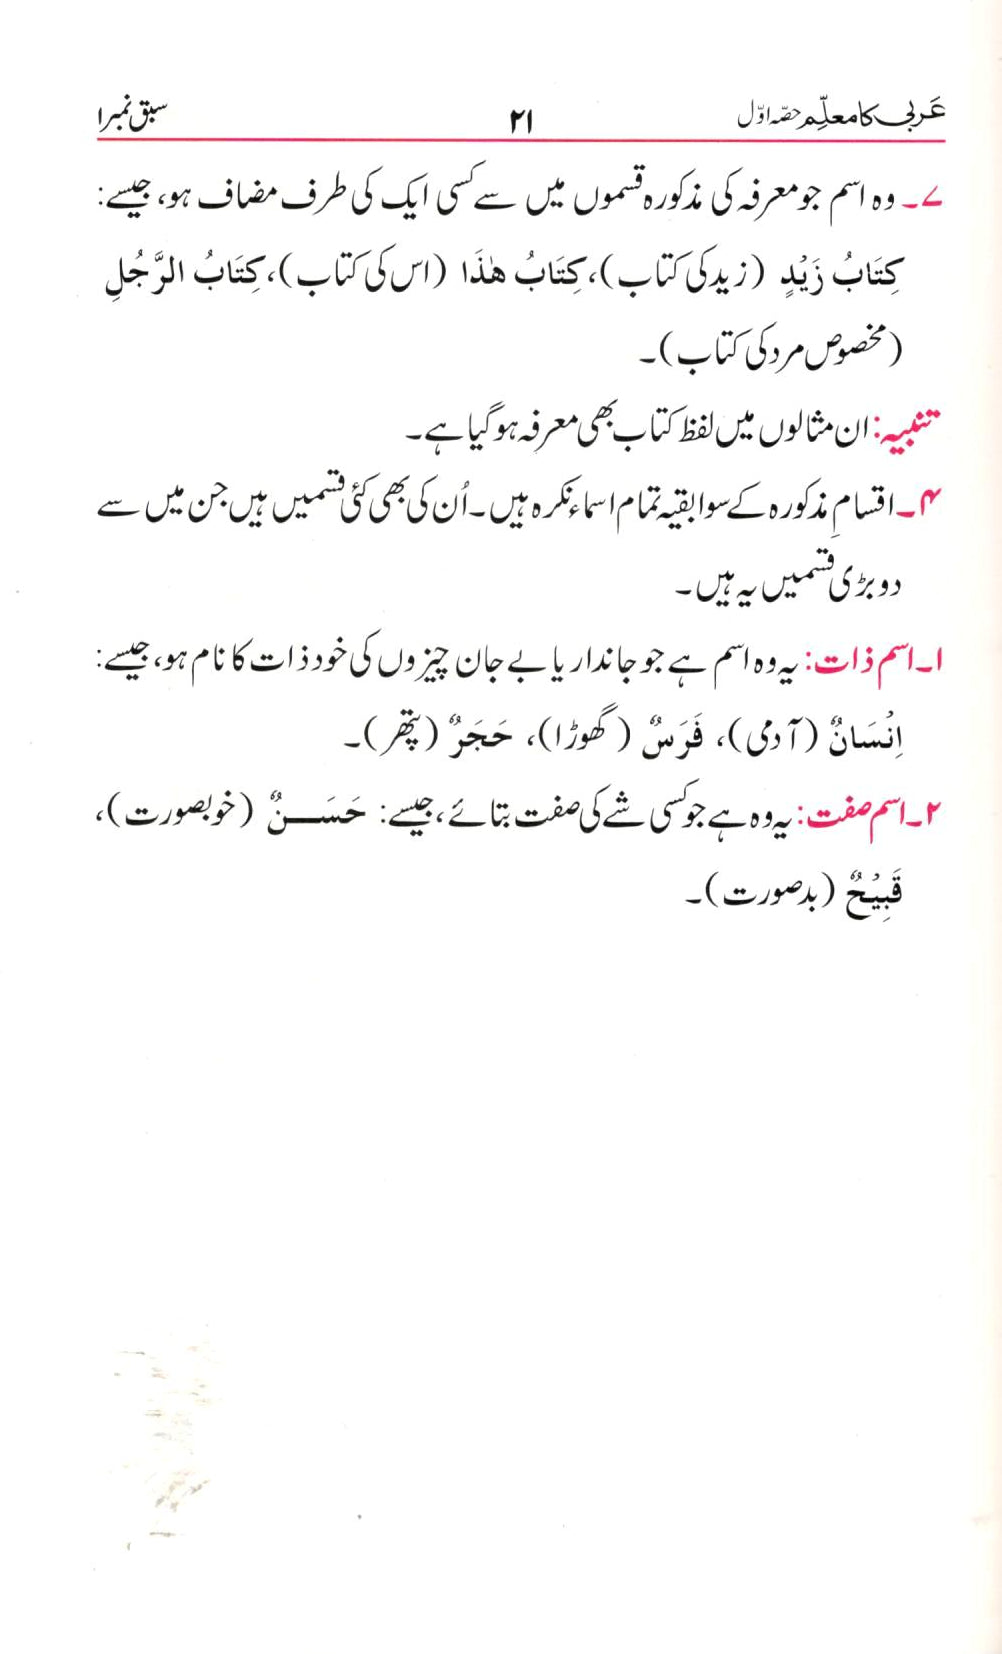 عَربی کا معلِّم حصّہ اوّل ۲۱ سبق نمبر۱
۷۔ وہ اسم جو معرفہ کی مذکورہ قسموں میں سے کسی ایک کی طرف مضاف ہو، جیسے:
كِتَابُ زَيْدٍ (زید کی کتاب)، كِتَابُ هٰذَا (اس کی کتاب)، كِتَابُ الرَّجُلِ
(مخصوص مرد کی کتاب)۔
تنبیہ: ان مثالوں میں لفظ کتاب بھی معرفہ ہو گیا ہے۔
۴۔ اقسامِ مذکورہ کے سوا بقیہ تمام اسماء نکرہ ہیں۔ اُن کی بھی کئی قسمیں ہیں جن میں سے
دو بڑی قسمیں یہ ہیں۔
۱۔ اسم ذات: یہ وہ اسم ہے جو جاندار یا بے جان چیزوں کی خود ذات کا نام ہو، جیسے:
اِنْسَانٌ (آدمی)، فَرَسٌ (گھوڑا)، حَجَرٌ (پتھر)۔
۲۔ اسم صفت: یہ وہ ہے جو کسی شے کی صفت بتائے، جیسے: حَسَـــنٌ (خوبصورت)،
قَبِيْحٌ (بدصورت)۔